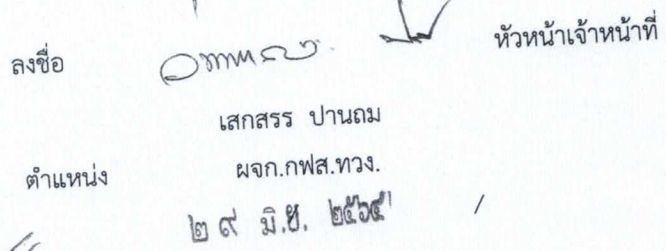 ลงชื่อ หัวหน้าเจ้าหน้าที่
เสกสรร ปานถม
ตำแหน่ง ผจก.กฟส.ทวง.
๒๙ มิ.ย. ๒๕๖๔